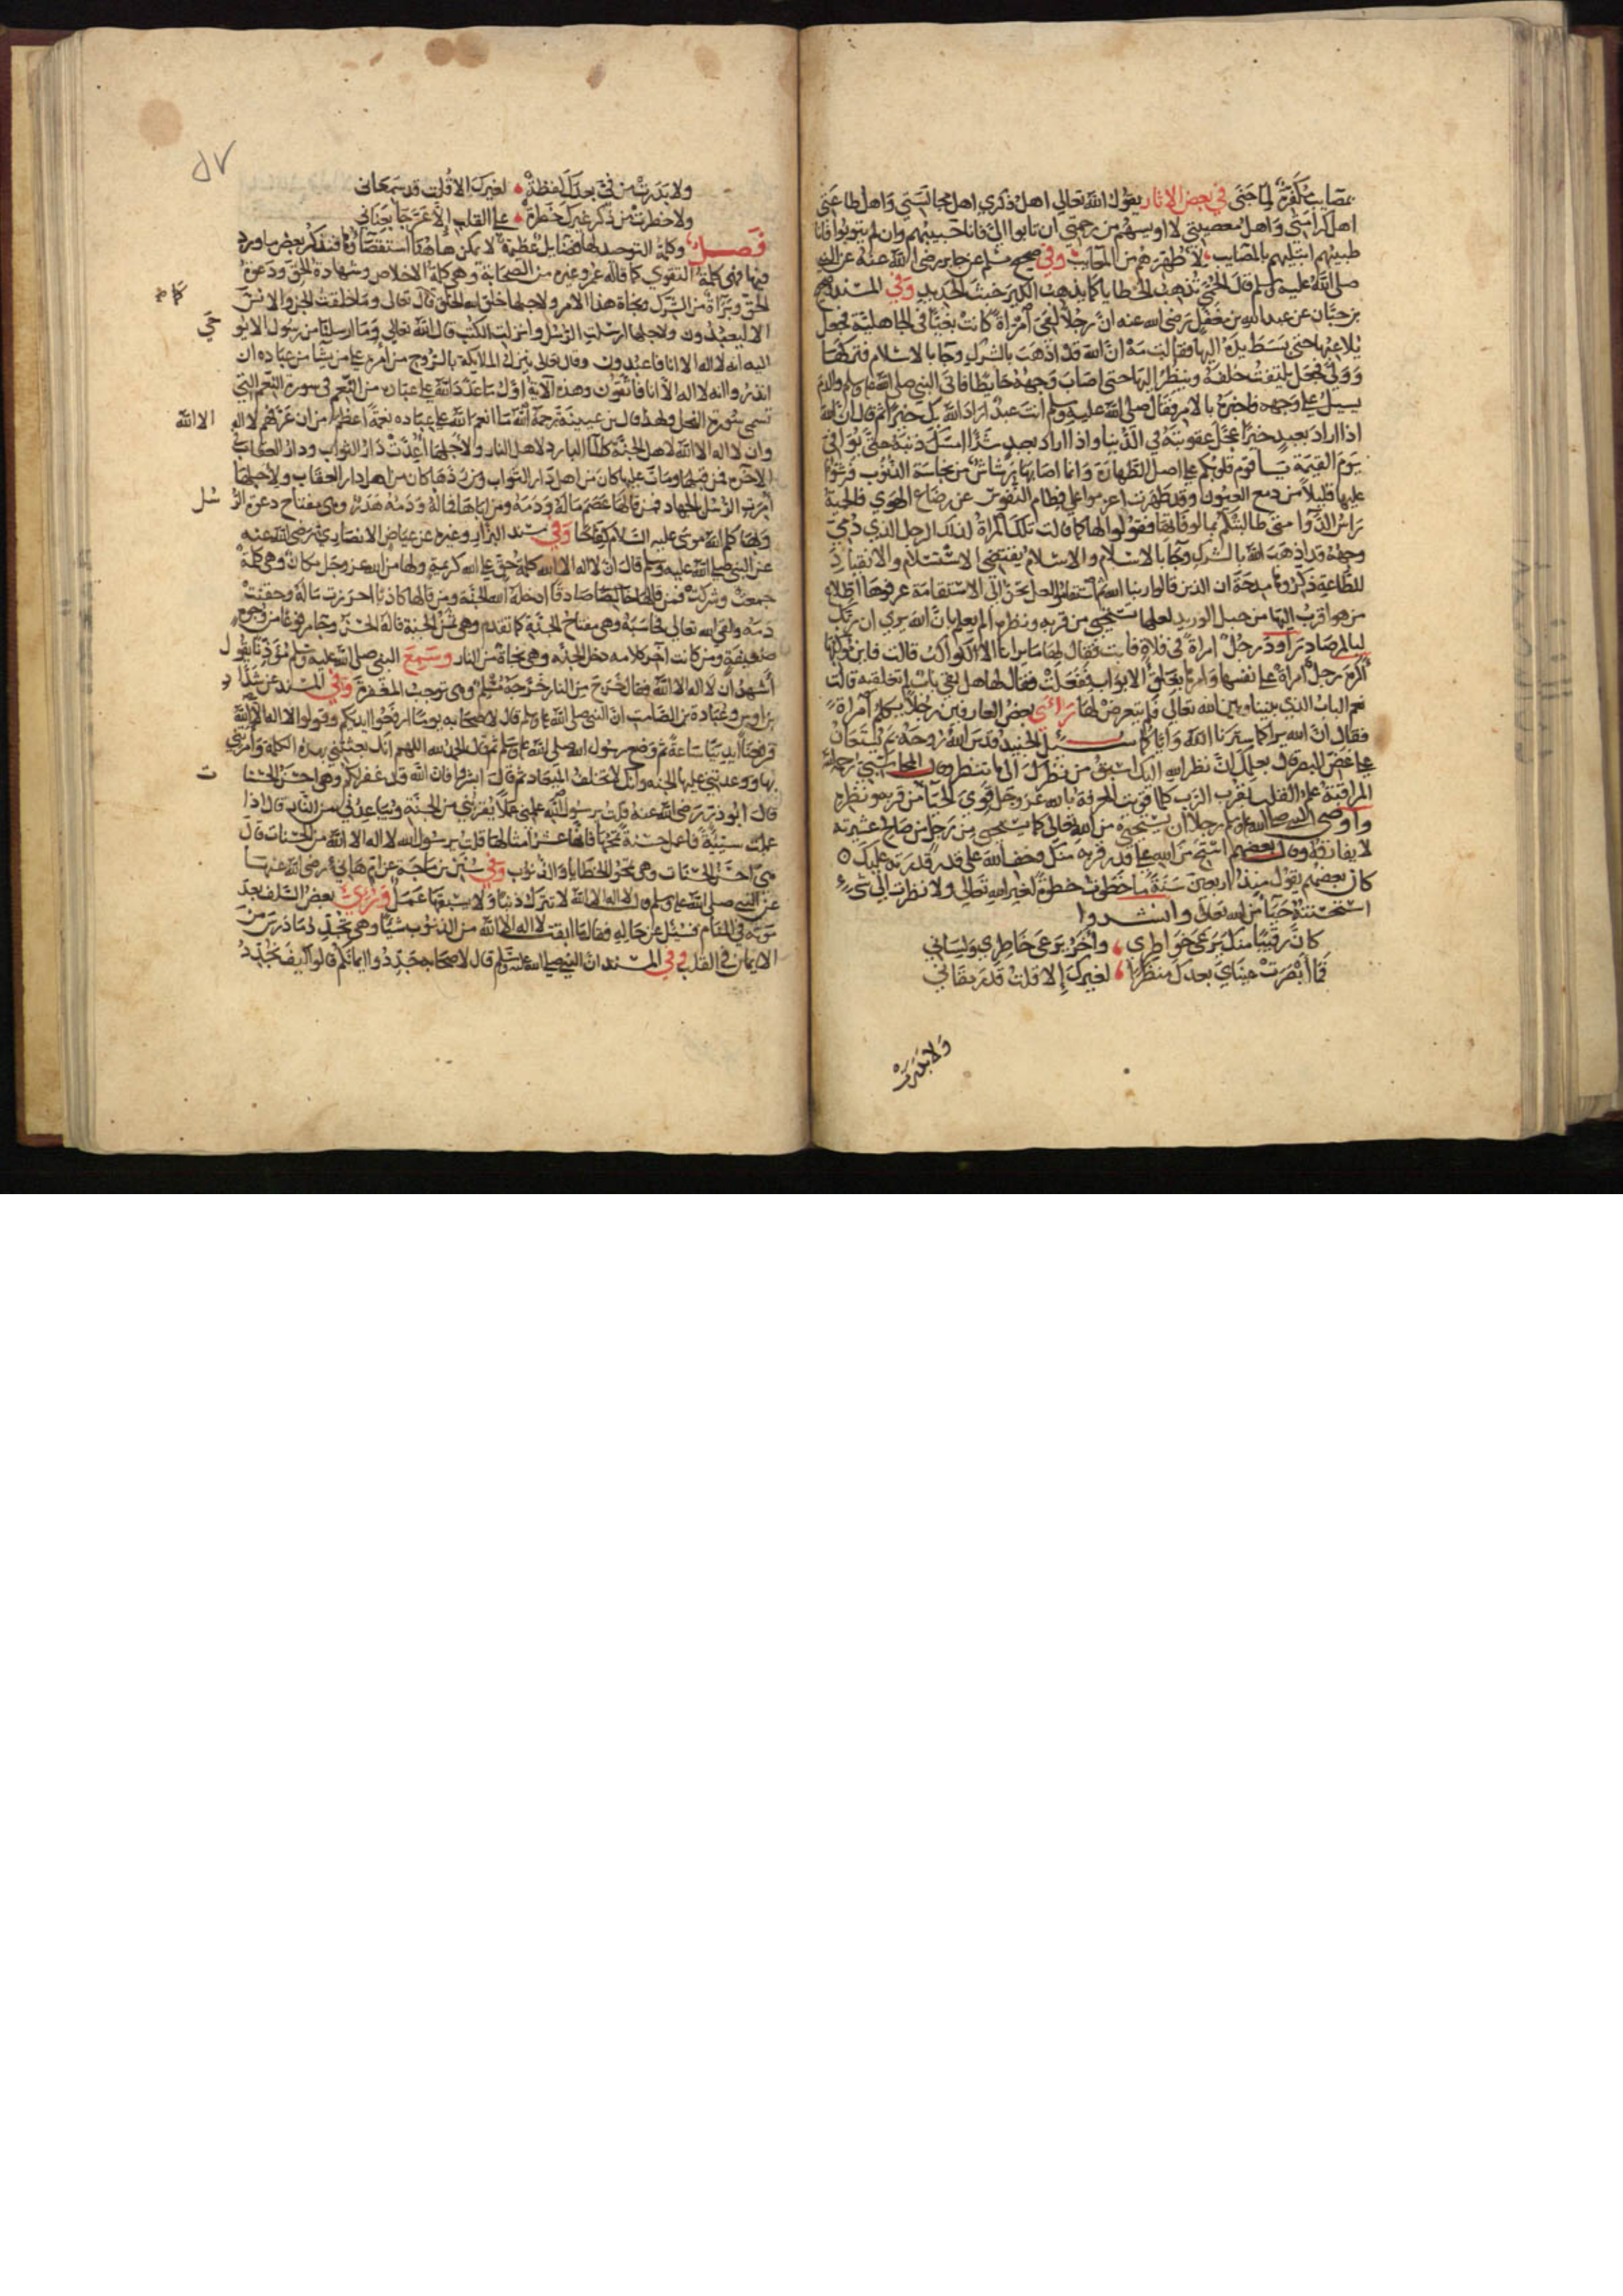 مصايب مكفرة لما جنى في بعض الاثار يقول الله تعالى اهل ذكري اهل مجالستي واهل طاعتي
اهل كرامتي واهل معصيتي لا اويسهم من رحمتي ان تابوا الي فانا حبيبهم وان لم يتوبوا فانا
طبيبهم ابتليهم بالمصايب لاطهرهم من المعايب وفي صحيح مسلم عن جابر رضي الله عنه عن النبي
صلى الله عليه وسلم قال الحمى تذهب الخطايا كما يذهب الكير خبث الحديد وفي المسند وصحيح
بن حبان عن عبد الله بن مغفل رضي الله عنه ان رجلا لقي امراة كانت بغيا في الجاهلية فجعل
يلاعبها حتى بسط يده اليها فقالت مه ان الله قد اذهب بالشرك وجا بالاسلام فتركها
وولى فجعل يلتفت خلفه وينظر اليها حتى اصاب وجهه حايطا فاتى النبي صلى الله عليه وسلم والدم
يسيل على وجهه فاخبره بالامر فقال صلى الله عليه وسلم انت عبد اراد الله بك خيرا ثم قال ان الله
اذا اراد بعبد خيرا عجل عقوبته في الدنيا واذا اراد بعبد شرا امسك ذنبه حتى يوافي
يوم القيمة يا قوم قلوبكم على اصل الطهارة وانما اصابها رشاش من نجاسة الذنوب فرشوا
عليها قليلا من دمع العيون وقد طهرت اعزموا على فطام النفوس عن رضاع الهوى فالحمية
راس الدوا متى طالبتكم بمالوفاتها فقولوا لها كما قالت تلك المراة لذلك الرجل الذي دمي
وجهه قد اذهب الله بالشرك وجا بالاسلام والاسلام يقتضي الاستسلام والانقياد
للطاعة ذكروها مدحة ان الذين قالوا ربنا الله ثم استقاموا لعلها تحن الى الاستقامة عرفوها اطلاع
من هو اقرب اليها من حبل الوريد لعلها تستحي من قربه ونظره الم يعلم بان الله يرى ان ربك
لبالمرصاد راود رجل امراة في فلاة فابت فقال لها ما يرانا الا الكواكب قالت فاين مكوكبها
اكره رجل امراة على نفسها وامرها بغلق الابواب ففعلت فقال لها هل بقي باب لم تغلقيه قالت
نعم الباب الذي بيننا وبين الله تعالى فلم يتعرض لها راى بعض العارفين رجلا يكلم امراة
فقال ان الله يراكما سترنا الله واياكما سيل الجنيد قدس الله روحه بم يستعان
على غض البصر قال بعلمك ان نظر الله اليك اسبق من نظرك الى ما تنظره قال المحاسبي رحمه الله
المراقبة علم القلب بقرب الرب كلما قويت المعرفة بالله عز وجل قوي الحيا من قربه ونظره
واوصى النبي صلى الله عليه وسلم رجلا ان يستحي من الله تعالى كما يستحي من رجل من صالح عشيرته
لا يفارقه وقال بعضهم استحي من الله على قدر قربه منك وخف الله على قدر قدرته عليك
كان بعضهم يقول منذ اربعين سنة ما خطوت خطوة لغير الله تعالى ولا نظرت الى شيء
استحسنته حيا من الله تعالى وانشدوا
كان رقيبا منك يرعى خواطري واخر يرعى خاطري ولساني
فما ابصرت عيناي بعدك منظرا لغيرك الا قلت قد رمقاني
ولا بدرت
٥٧
ولا بدرت من في بعدك لفظة لغيرك الا قلت قد سمعاني
ولا خطرت من ذكر غيرك خطرة على القلب الا عرجا بجناني
فصل وكلمة التوحيد لها فضايل عظيمة لا يمكن هاهنا استقصاوها فنذكر بعض ما ورد
فيها فهي كلمة التقوى كما قاله عمر وغيره من الصحابة وهي كلمة الاخلاص وشهادة الحق ودعوة
الحق وبراة من الشرك ونجاة هذا الامر ولاجلها خلق الله الخلق كما قال تعالى وما خلقت الجن والانس
الا ليعبدون ولاجلها ارسلت الرسل وانزلت الكتب قال الله تعالى وما ارسلنا من رسول الا يوحي
اليه انه لا اله الا انا فاعبدون وقال تعالى ينزل الملايكة بالروح من امره على من يشا من عباده ان
انذروا انه لا اله الا انا فاتقون وهذه الاية اول ما عدد الله على عباده من النعم في سورة النعم التي
تسمى سورة النحل ولهذا قال بن عيينة رحمه الله ما انعم الله على عباده نعمة اعظم من ان عرفهم لا اله الا الله
وان لا اله الا الله لاهل الجنة كالما البارد لاهل النار ولاجلها اعدت دار الثواب ودار العقاب في
الاخرة فمن قبلها ومات عليها كان من اهل دار الثواب ومن ردها كان من اهل دار العقاب ولاجلها
امرت الرسل بالجهاد فمن قالها عصم ماله ودمه ومن اباها فماله ودمه هدر وهي مفتاح دعوة الرسل
وبها كلم الله موسى عليه السلام كفاحا وفي مسند البزار وغيره عن عياض الانصاري رضي الله عنه
عن النبي صلى الله عليه وسلم قال ان لا اله الا الله كلمة حق على الله كريمة ولها من الله عز وجل مكان وهي كلمة
جمعت وشركت فمن قالها خالصا صادقا ادخله الله الجنة ومن قالها كاذبا احرزت ماله وحقنت
دمه ولقي الله تعالى فحاسبه وهي مفتاح الجنة كما تقدم وهي ثمن الجنة قاله الحسن وجا مرفوعا من وجوه
ضعيفة ومن كانت اخر كلامه دخل الجنة وهي نجاة من النار وسمع النبي صلى الله عليه وسلم موذنا يقول
اشهد ان لا اله الا الله فقال خرج من النار خرجه مسلم وهي توجب المغفرة وفي المسند عن شداد
بن اوس وعبادة بن الصامت ان النبي صلى الله عليه وسلم قال لاصحابه يوما ارفعوا ايديكم وقولوا لا اله الا الله
فرفعنا ايدينا ساعة ثم وضع رسول الله صلى الله عليه وسلم ثم قال الحمد لله اللهم انك بعثتني بهذه الكلمة وامرتني
بها ووعدتني عليها الجنة وانك لا تخلف الميعاد ثم قال ابشروا فان الله قد غفر لكم وهي احسن الحسنات
قال ابو ذر رضي الله عنه قلت يرسول الله علمني عملا يقربني من الجنة ويباعدني من النار قال اذا
عملت سيية فاعمل حسنة تمحها فانها عشر امثالها قلت يرسول الله لا اله الا الله من الحسنات قال
هي احسن الحسنات وهي تمحو الخطايا والذنوب وفي سنن بن ماجة عن ام هاني رضي الله عنها
عن النبي صلى الله عليه وسلم قال لا اله الا الله لا تترك ذنبا ولا يسبقها عمل وروي بعض السلف بعد
موته في المنام فسيل عن حاله فقال ما ابقت لا اله الا الله من الذنوب شيا وهي تجدد ما درس من
الايمان في القلب وفي المسند ان النبي صلى الله عليه وسلم قال لاصحابه جددوا ايمانكم قالوا كيف نجدد